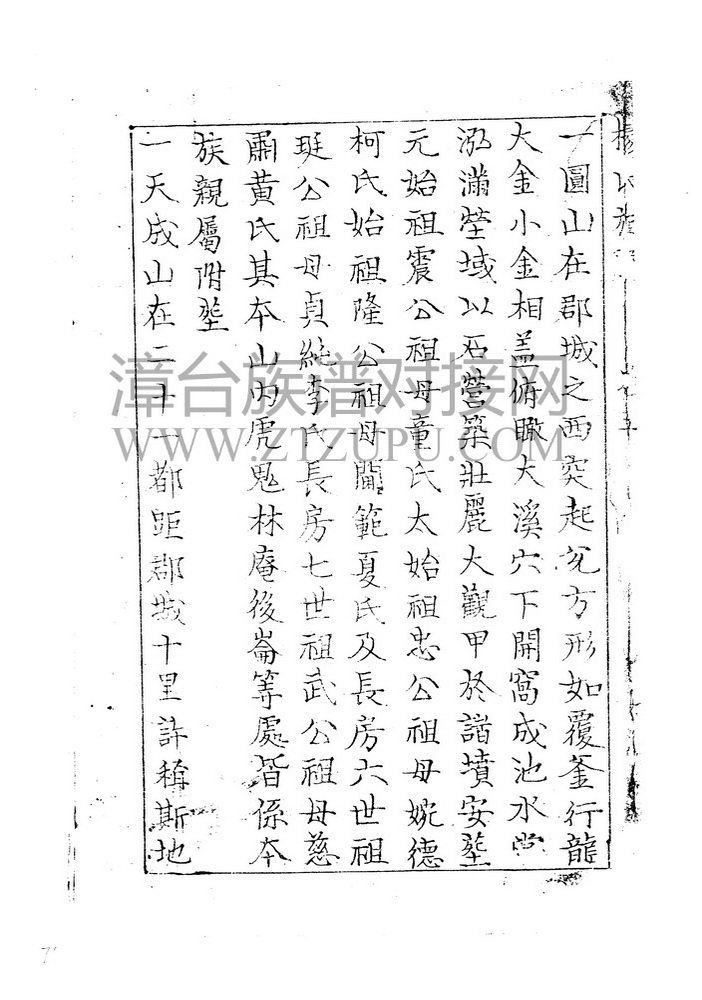 一圓山在郡城之西突起兊方形如覆釜行龍
大金小金相盖俯瞰大溪穴下開窩成池水常
泓滿塋域以石營築壯麗大觀甲於諸墳安塟
元始祖震公祖母童氏太始祖忠公祖母婉德
柯氏始祖隆公祖母閫範夏氏及長房六世祖
珽公祖母貞純李氏長房七世祖武公祖母慈
肅黄氏其本山内虎鬼林庵後崙等處皆係本
族親屬附塟
一天成山在二十一都距郡城十里許稱斯地
漳台族谱对接网
WWW.ZTZUPU.COM